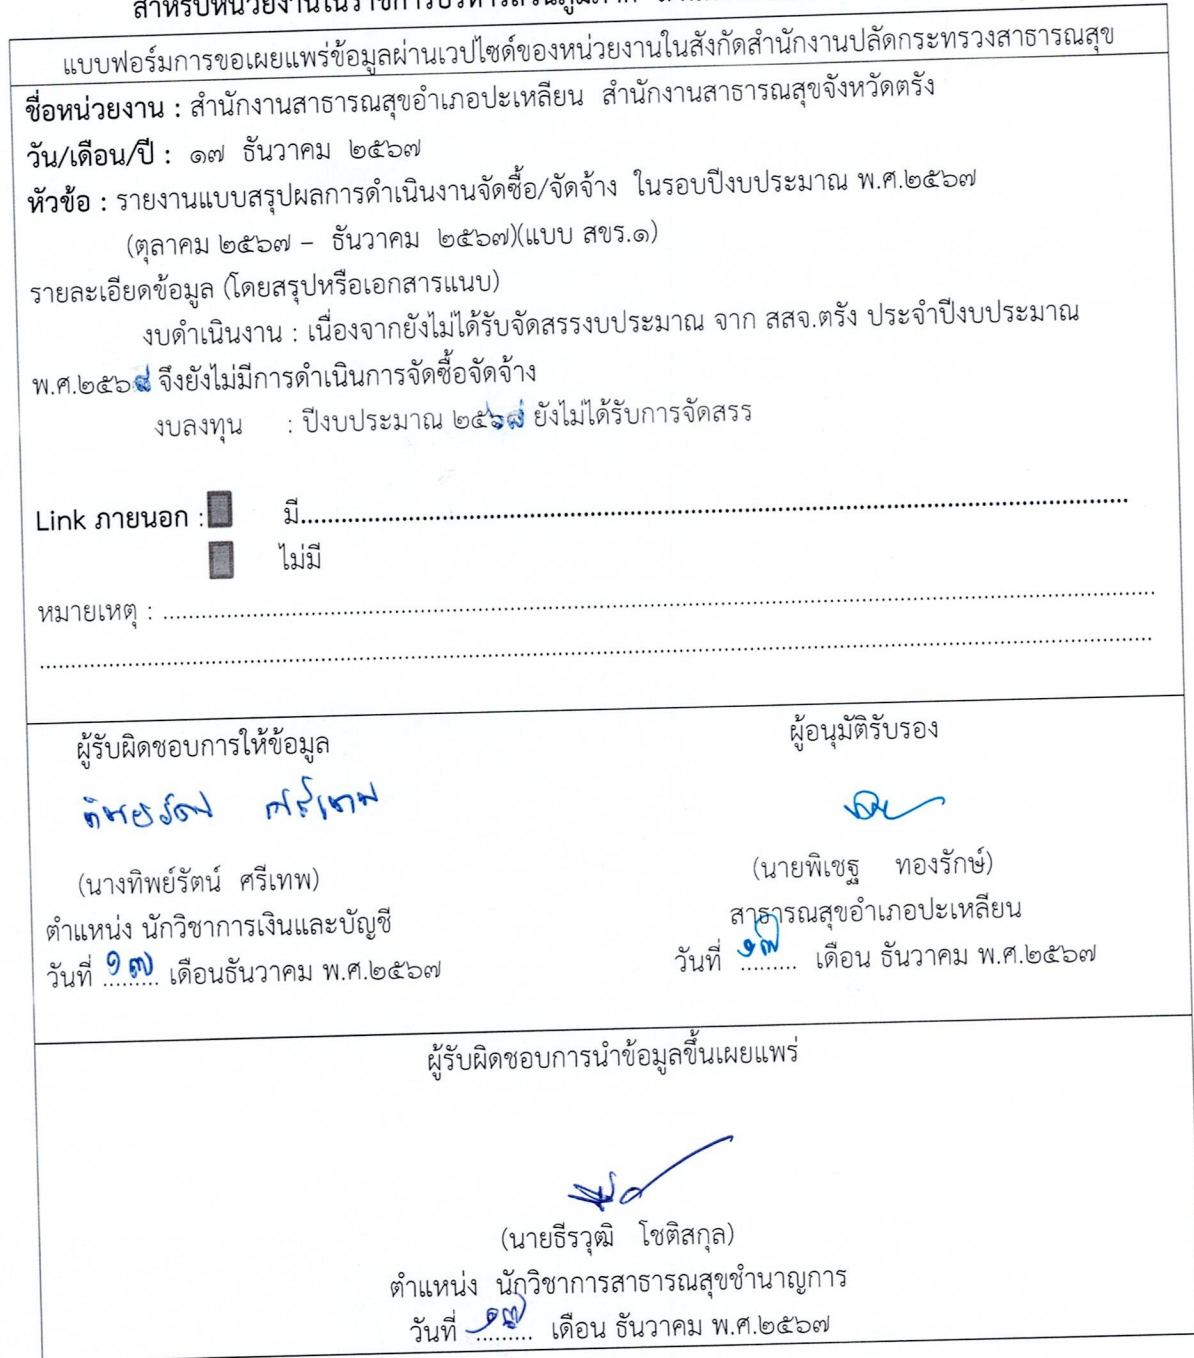 สำหรับหน่วยงานในราชการบริหารส่วนภูมิภาค
แบบฟอร์มการขอเผยแพร่ข้อมูลผ่านเวปไซด์ของหน่วยงานในสังกัดสำนักงานปลัดกระทรวงสาธารณสุข
ชื่อหน่วยงาน : สำนักงานสาธารณสุขอำเภอปะเหลียน สำนักงานสาธารณสุขจังหวัดตรัง
วัน/เดือน/ปี : ๑๗ ธันวาคม ๒๕๖๗
หัวข้อ : รายงานแบบสรุปผลการดำเนินงานจัดซื้อ/จัดจ้าง ในรอบปีงบประมาณ พ.ศ.๒๕๖๗
(ตุลาคม ๒๕๖๗ – ธันวาคม ๒๕๖๗)(แบบ สขร.๑)
รายละเอียดข้อมูล (โดยสรุปหรือเอกสารแนบ)
งบดำเนินงาน : เนื่องจากยังไม่ได้รับจัดสรรงบประมาณ จาก สสจ.ตรัง ประจำปีงบประมาณ
พ.ศ.๒๕๖๘ จึงยังไม่มีการดำเนินการจัดซื้อจัดจ้าง
งบลงทุน : ปีงบประมาณ ๒๕๖๘ ยังไม่ได้รับการจัดสรร
Link ภายนอก : มี..........
ไม่มี
หมายเหตุ : ..........
ผู้รับผิดชอบการให้ข้อมูล
ผู้อนุมัติรับรอง
ทิพยรัตน์ ศรีเทพ
(นางทิพย์รัตน์ ศรีเทพ)
(นายพิเชฐ ทองรักษ์)
ตำแหน่ง นักวิชาการเงินและบัญชี
สาธารณสุขอำเภอปะเหลียน
วันที่ ๑๗ เดือนธันวาคม พ.ศ.๒๕๖๗
วันที่ ๑๗ เดือน ธันวาคม พ.ศ.๒๕๖๗
ผู้รับผิดชอบการนำข้อมูลขึ้นเผยแพร่
(นายธีรวุฒิ โชติสกุล)
ตำแหน่ง นักวิชาการสาธารณสุขชำนาญการ
วันที่ ๑๗ เดือน ธันวาคม พ.ศ.๒๕๖๗